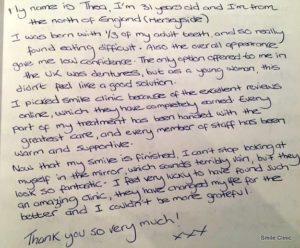 My name is Thea, I'm 31 years old and I'm from
the north of England (Merseyside)
I was born with 1/3 of my adult teeth, and so really
found eating difficult. Also the overall appearance
give me low confidence. The only option offered to me in
the UK was dentures, but as a young woman, this
didn't feel like a good solution.
I picked smile clinic because of the excellent reviews
online, which they have completely earned. Every
part of my treatment has been handled with the
greatest care, and every member of staff has been
warm and supportive.
Now that my smile is finished, I can't stop looking at
myself in the mirror, which sounds terribly vain, but they
look so fantastic. I feel very lucky to have found such
an amazing clinic, they have changed my life for the
better and I couldn't be more grateful.
Thank you so very much!
xxx
Smile Clinic